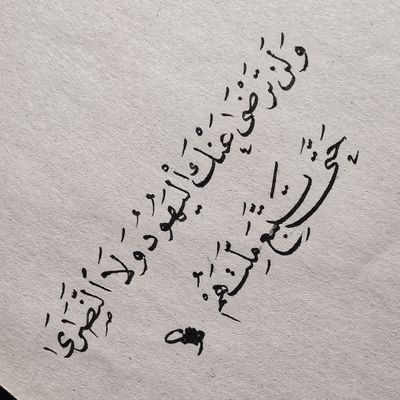 وَلَن تَرْضَىٰ عَنْكَ الْيَهُودُ وَلَا النَّصَٰرَىٰ
حَتَّىٰ تَتَّبِعَ مِلَّتَهُمْ